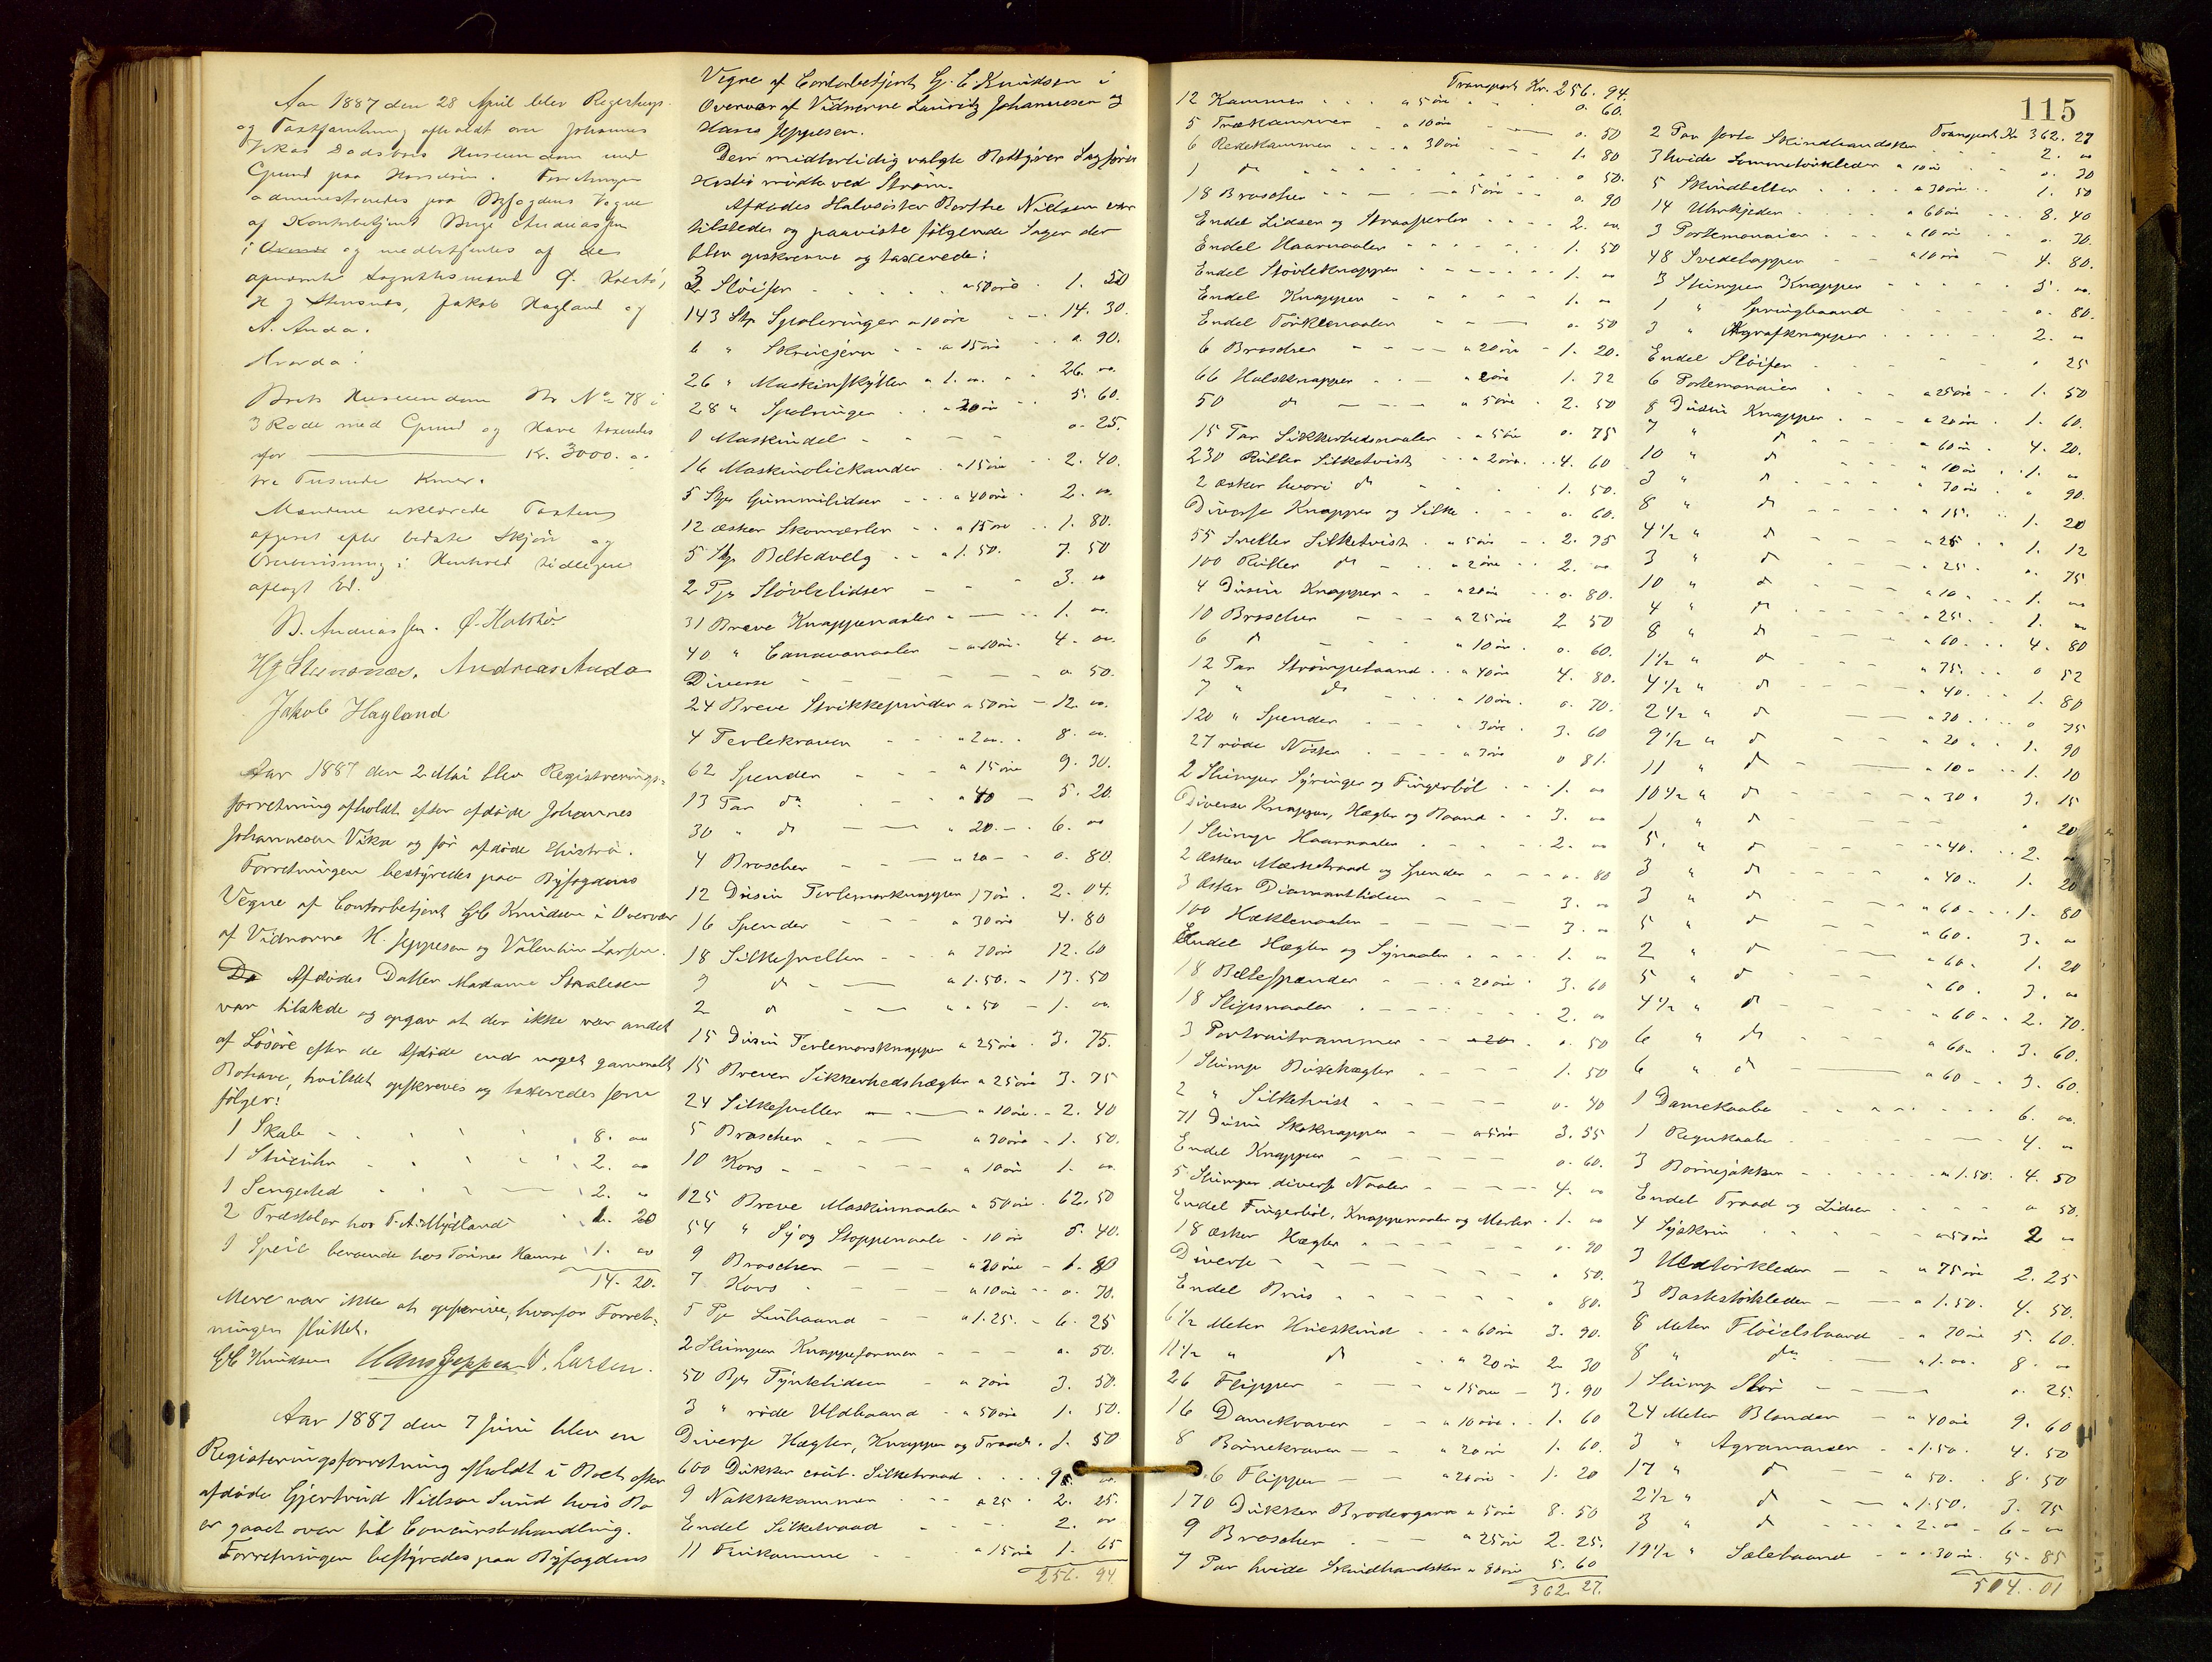 Aar 1887 den 28 April blev Registrerings-
og Taxtforretning afholdt over Johannes
Vikas Dødsbos Huseiendom med
Grund paa . Forretningen
administreredes paa Byfogdens Vegne
af Kontorbetjent Andreassen
i og medbetjentes af de
opnævnte Lagrettesmænd Ø. Kolstø,
H J Stensnæs, Jakob Hagland og
A. Anda.
Hvorda:
Boets Huseiendom No 78 i
3 Rode med Grund og Have taxeredes
for Kr. 3000. „
tre Tusinde Kroner.
Mændene erklærede Taxten
afgivet efter bedste Skjøn og
Overbevisning i Henhold tidligere
aflagt Ed.
B. Andreassen. Ø. Kolstø
HJ Stensnæs. Andreas Anda
Jakob Hagland
Aar 1887 den 2 Mai blev Registrerings-
forretning afholdt efter afdøde Johannes
Johannesen Vika og før afdøde Hustru.
Forretningen bestyredes paa Byfogdens
Vegne af Contorbetjent GC Knudsen i Overvær
af Vidnerne H. Jeppesen og Valentin Larsen.
Afdødes Datter Madame Staalesen
var tilstede og opgav at der ikke var andet
af Løsøre efter de Afdøde end noget gammelt
Bohave, hvilket opskreves og taxeredes som
følger:
1 Skab 8. „
1 Stueuhr 2. „
1 Sengested 2. „
2 Træstoler hos T. A. Mydland 1. 20
1 Speil beroende hos Tønnes 1. „
14. 20.
Mere var ikke at opskrive, hvorfor Forret-
ningen sluttet.
GC Knudsen Hans Jeppesen V. Larsen.
Aar 1887 den 7 Juni blev en
Registreringsforretning afholdt i Boet efter
afdøde Gjertrud Nielsen Sund hvis Bo
er gaaet over til Concursbehandling.
Forretningen bestyredes paa Byfogdens
Vegne af Contorbetjent G. C. Knudsen i
Overvær af Vidnerne Lauritz Johannesen og
Hans Jeppesen.
Den midlertidig valgte Bestyrer Sagfører
mødte ved Strøm.
Afdødes Halvsøster Berthe Nielsen var
tilstede og paaviste følgende Sager der
blev opskrevne og taxerede:
3 Sløifer a 50 øre 1. 50
143 Stk Spoleringer a 10 øre 14. 30.
6 „ Skruejern a 15 øre „ 90.
26 „ Maskinskytler a 1. „ 26. „
28 „ Spolringer a 20 øre 5. 60.
1 Maskindel „ 25.
16 Maskinoliekander a 15 øre 2. 40.
5 Stk Gummilidser a 40 øre 2. „
12 æsker Skomærler a 15 øre 1. 80.
5 Stk Beltedvelg a 1. 50. 7. 50
2 Pk Støvlelidser 3. „
31 Breve Knappenaaler 1. „
40 „ Canavanaaler a 10 øre 4. „
Diverse „ 50.
24 Breve Strikkepinder a 50 øre 12. „
4 Perlekraver a 2 „ 8. „
62 Spender a 15 øre 9. 30.
13 Par do a 40 5. 20.
30 „ do a 20. 6. „
4 Broscher a 20 0. 80.
12 Dusin Perlemorknapper 17 øre 2. 04.
16 Spender a 30 øre 4. 80
18 Silkesneller a 70 øre 12. 60
9 do a 1. 50. 13. 50
2 do a 50 1. „
15 Dusin Perlemorsknapper a 25 øre 3. 75.
15 Breve Sikkerhedshægter a 25 øre 3. 75
24 Silkesneller a 10 øre 2. 40
5 Broscher a 30 øre 1. 50.
10 Kors a 10 øre 1. „
125 Breve Maskinnaaler a 50 øre 62. 50
54 „ Sy og Stoppenaale 10 øre 5. 40.
9 Broscher a 20 øre 1. 80
7 Kors a 10 øre 0. 70.
5 Pk Linbaand a 1. 25. 6. 25
2 Slumper Knappeformer 0. 50.
50 Bk Tynklidser a 7 øre 3. 50.
3 „ røde Uldbaand a 50 øre 1. 50.
Diverse Hægter, Knapper og Traad 1. 50
600 Dukker Silketraad 9. „
9 Nakkekammer a 25 2. 25.
Endel Silketraad 2. „
11 Finkamme a 15 øre 1. 65
256. 94
115
Transport Kr. 256. 94.
12 Kammer a 5 øre 0. 60.
5 Trækammer a 10 øre 0. 50
6 Redekammer a 30 øre 1. 80
1 do 0 50.
18 Broscher a 5 øre 0. 90
Endel Lidser og Straaperler 2. „
Endel Haarnaaler 1. 50
Endel Støvleknapper 1. „
Endel Knapper 1. „
Endel Tørklenaaler 0. 50
6 Broscher a 20 øre 1. 20.
66 Halsknapper a 2 øre 1. 32
50 do a 5 øre 2. 50
15 Par Sikkerhedsnaaler a 5 øre 0. 75
230 Ruller Silketvist a 2 øre 4. 60
2 æsker hvori do 1. 50.
Diverse Knapper og Silke 0. 60.
55 Sneller Silketvist a 5 øre 2. 75
100 Ruller do a 2 øre 2. „
4 Dusin Knapper a 20 øre 0. 80.
10 Broscher a 25 øre 2 50
6 do a 10 øre 0. 60.
12 Par Strømpebaand a 40 øre 4. 80.
7 „ do a 10 øre 0. 70.
120 „ Spender a 3 øre 3. 60
27 røde Nøster a 3 øre 0 81.
2 Slumper Syringer og Fingerbøl 1. „
Diverse Knapper, Hægter og Baand 3. „
1 Slump Haarnaaler 2. „
2 æsker Mærketraad og Spender 0. 80
3 æsker Diamantlidser 3. „
100 Heklenaaler 3. „
Endel Hægter og Synaaler 1. „
18 Beltespænder a 20 øre 3. 60
18 Slipsnaaler 2. „
3 Portraitrammer 0. 50
1 Slump Buxehægter 1. 50
2 „ Silketvist 0. 40
71 Dusin Skoknapper a 5 øre 3. 55
Endel Knapper 0. 60.
5 Slumper diverse Naaler 4. „
Endel Fingerbøl, Knappenaaler og Merler 1. „
18 æsker Hægter 0. 90
Diverse „ 50.
Endel Bris „ 80.
6 1/2 Meter Hueskind a 60 øre 3. 90.
11 1/2 „ do a 20 øre 2 30
26 Flipper a 15 øre 3. 90
16 Damekraver a 10 øre 1. 60
8 Børnekraver a 20 øre 1. 60.
6 Flipper a 20 øre 1. 20
170 Dukker Brodergarn a 5 øre 8. 50
9 Broscher a 25 øre 2. 25.
7 Par hvide Skindhandsker a 80 øre 5. 60
362. 27.
Transport Kr 362. 27
2 Par sorte Skindhandsker 2. „
3 hvide Lommetørkleder a 10 øre 0. 30
5 Skindbelter a 30 øre 1. 50
14 Uhrkjeder a 60 øre 8. 40
3 Portemonaier a 10 øre 0. 30.
48 Svedelapper a 10 øre 4. 80.
3 Slumper Knapper 5. „
1 „ Springbaand 0. 80.
3 „ Agrafknapper 2. „
Endel Sløifer „ 25
6 Portemonaier a 25 øre 1. 50
8 Dusin Knapper a 20 øre 1. 60.
7 „ do a 60 øre 4. 20.
10 „ do a 10 øre 1. „
3 „ do a 30 øre „ 90.
8 „ do a 15. 1. 20
4 1/2 „ do a 25 1. 12
3 „ do a 25. 0. 75
10 „ do a 10 1. „
4 „ do a 25. 1. „
8 „ do a 60 4. 80
1 1/2 „ do a 75. 0 52
4 1/2 „ do a 40. 1. 80
2 1/2 „ do a 30 0 75
9 1/2 „ do a 20 1. 90
11 „ do a 10 1. 10
10 1/2 „ do a 30 3. 15
1 „ do „ 20
5. „ do a 40. 2. „
3 „ do a 40 1. 20
3 „ do a 60 1. 80
5 „ do a 60. 3. „
2 „ do a 60 1. 20
5 „ do a 60. 3. „
4 1/2 „ do a 60 2. 70.
6 „ do a 60 3. 60.
6 „ do a 60 3. 60.
1 Damekaabe 6. „
1 Regnkaabe 4. „
3 Børnejakker a 1. 50. 4. 50
Endel Traad og Lidser 0 50.
4 Syskrin a 50 øre 2 „
3 Uldtørkleder a 75 øre 2. 25
3 Basketørkleder a 1. 50. 4. 50.
8 Meter Fløielsbaand a 70 øre 5. 60.
8 „ do a 1. „ 8. „
1 Slump Slør 0. 25.
24 Meter Blonder a 40 øre 9. 60
3 „ Agramaner a 1. 50. 4. 50
17 „ do a 50. 8. 50
2 1/2 „ do a 1. 50. 3. 75
3 „ do a 2. „ 6. „
19 1/2 „ Salebaand a 30 øre 5. 85
504. 01